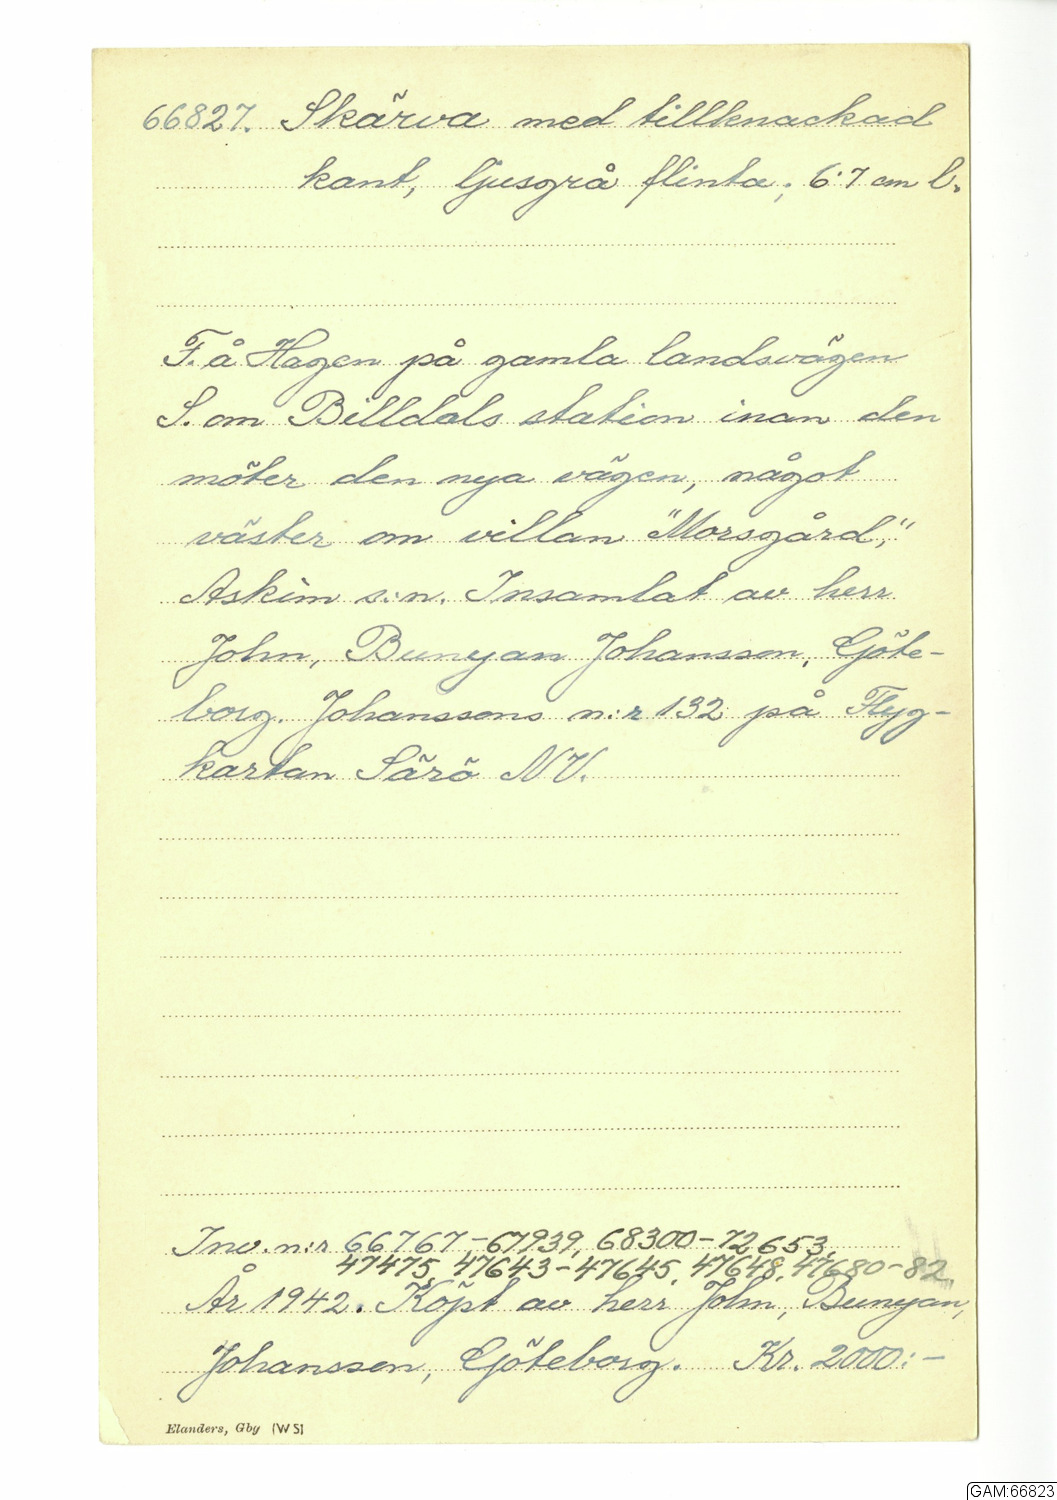 66827. Skärva med tillknackad
kant, ljusgrå flinta; 6·7 cm l.
F. å Hagen på gamla landsvägen
S. om Billdals station inan den
möter den nya vägen, något
väster om villan "Morsgård,"
Askim s:n. Insamlat av herr
John, Bunyan Johansson, Göte-
borg. Johanssons n:r 132 på Flyg-
kartan Särö NV.
Inv. n:r 66767-67939, 68300-72653,
47475, 47643-47645, 47648, 47680-82
År 1942. Köpt av herr John, Bunyan,
Johansson, Göteborg. Kr. 2000:-
Elanders, Gby (WS)
GAM:66823